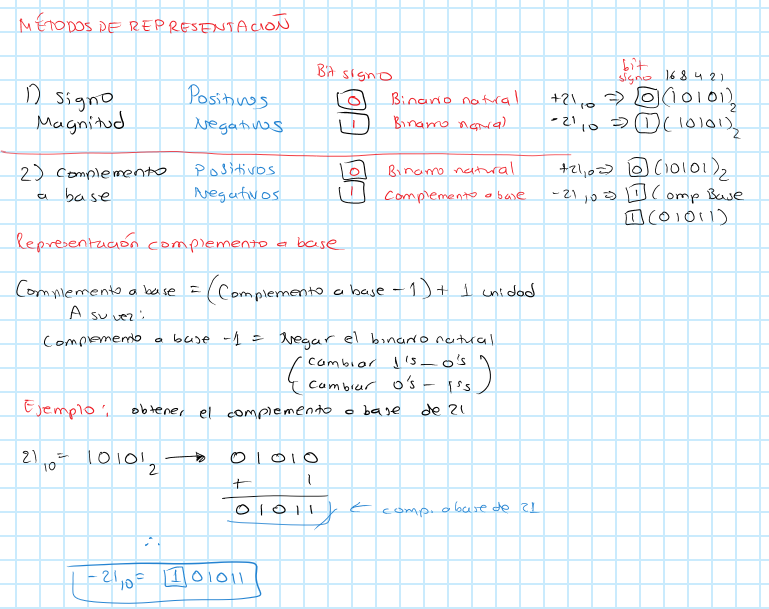 MÉTODOS DE REPRESENTACIÓN
Bit signo
bit signo 16 8 4 2 1
1) Signo Positivos 0 Binario natural +21₁₀ ⇒ 0(10101)₂
Magnitud Negativos 1 Binario natural -21₁₀ ⇒ 1(10101)₂
2) Complemento Positivos 0 Binario natural +21₁₀ ⇒ 0(10101)₂
a base Negativos 1 Complemento a base -21₁₀ ⇒ 1(omp Base
1(01011)
Representación complemento a base
Complemento a base = (Complemento a base - 1) + 1 unidad
A su vez:
Complemento a base -1 = Negar el binario natural
(cambiar 1's - 0's
cambiar 0's - 1's)
Ejemplo: obtener el complemento a base de 21
21₁₀ = 10101₂ → 01010
+ 1
01011 ← comp. a base de 21
∴
-21₁₀ = 1 01011